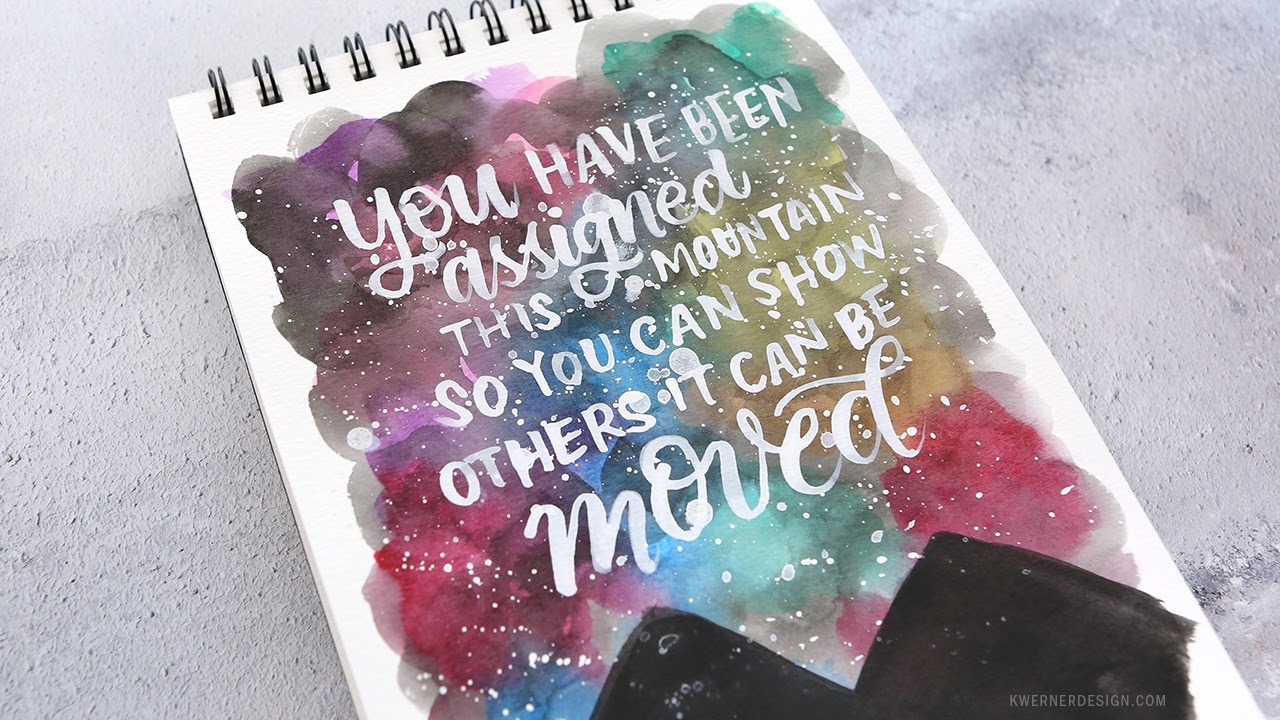 You HAVE BEEN
assigned
THIS MOUNTAIN
SO YOU CAN SHOW
OTHERS IT CAN BE
moved
KWERNERDESIGN.COM